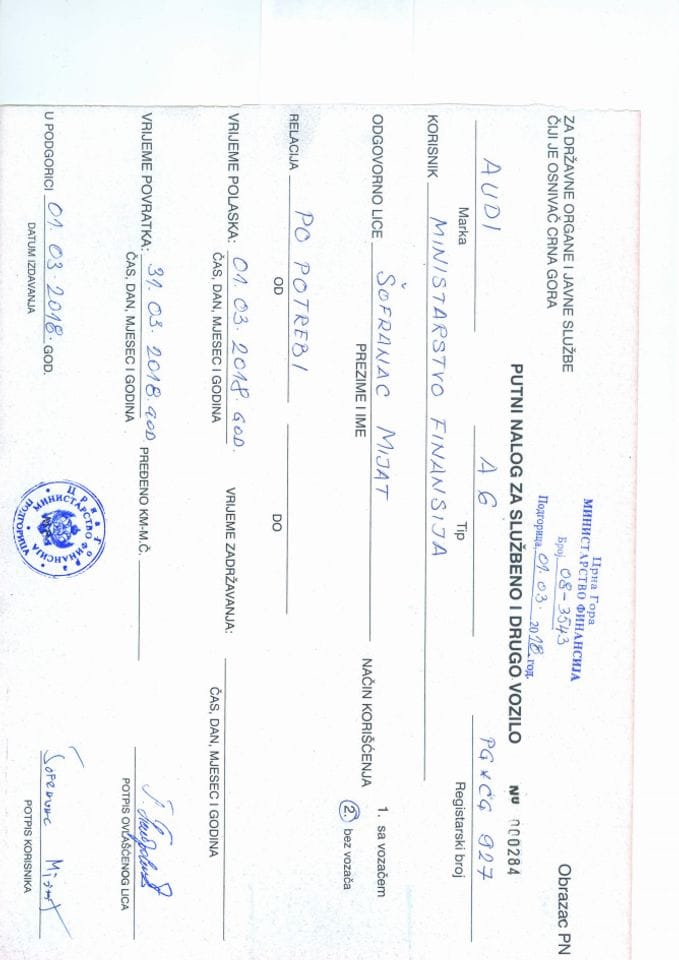 ZA DRŽAVNE ORGANE I JAVNE SLUŽBE
ČIJI JE OSNIVAČ CRNA GORA
Obrazac PN
Црна Гора
МИНИСТАРСТВО ФИНАНСИЈА
Број 08-3543
Подгорица, 01.03. 2018 год.
PUTNI NALOG ZA SLUŽBENO I DRUGO VOZILO
Nº 000284
AUDI A6 PG*CG 927
Marka Tip Registarski broj
KORISNIK MINISTARSTVO FINANSIJA
ODGOVORNO LICE ŠOFRANAC MIJAT
PREZIME I IME
NAČIN KORIŠĆENJA 1. sa vozačem
2. bez vozača
RELACIJA PO POTREBI
OD DO
VRIJEME POLASKA: 01.03.2018.GOD. VRIJEME ZADRŽAVANJA:
ČAS, DAN, MJESEC I GODINA ČAS, DAN, MJESEC I GODINA
VRIJEME POVRATKA: 31.03.2018.GOD. PREĐENO KM-M.Č.
ČAS, DAN, MJESEC I GODINA POTPIS OVLAŠĆENOG LICA
U PODGORICI 01.03.2018. GOD.
DATUM IZDAVANJA
Црна Гора
МИНИСТАРСТВО ФИНАНСИЈА
ПОДГОРИЦА
POTPIS KORISNIKA